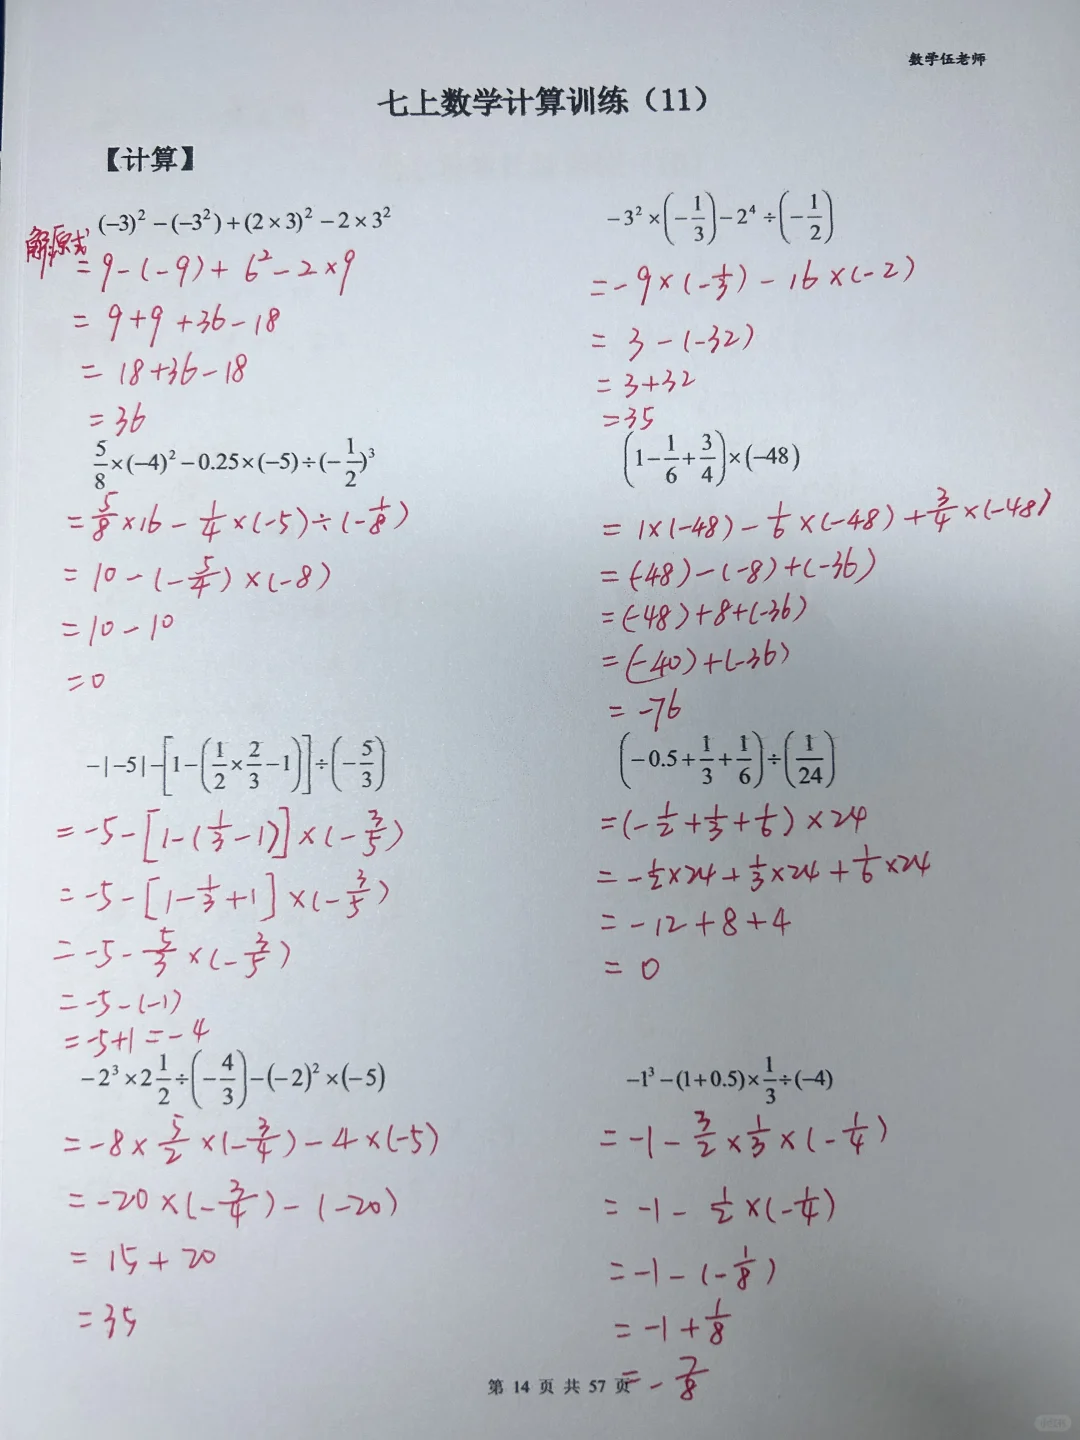 数学伍老师
七上数学计算训练（11）
【计算】
(−3)² −(−3²)+(2×3)² −2×3²
解:原式
= 9-(-9)+ 6²-2×9
= 9+9+36-18
= 18+36-18
= 36
−3²×(−1/3)−2⁴÷(−1/2)
= -9×(-1/3) - 16×(-2)
= 3-(-32)
= 3+32
= 35
5/8×(−4)²−0.25×(−5)÷(−1/2)³
= 5/8×16 - 1/4×(-5)÷(-1/8)
= 10-(-5/4)×(-8)
= 10-10
= 0
(1−1/6+3/4)×(−48)
= 1×(-48)-1/6×(-48)+3/4×(-48)
= (-48)-(-8)+(-36)
= (-48)+8+(-36)
= (-40)+(-36)
= -76
−|−5|−[1−(1/2×2/3−1)]÷(−5/3)
= -5-[1-(1/3-1)]×(-3/5)
= -5-[1-1/3+1]×(-3/5)
= -5-5/3×(-3/5)
= -5-(-1)
= -5+1=-4
(−0.5+1/3+1/6)÷(1/24)
= (-1/2+1/3+1/6)×24
= -1/2×24+1/3×24+1/6×24
= -12+8+4
= 0
−2³×2 1/2÷(−4/3)−(−2)²×(−5)
= -8×5/2×(-3/4)-4×(-5)
= -20×(-3/4)-(-20)
= 15+20
= 35
−1³−(1+0.5)×1/3÷(−4)
= -1-3/2×1/3×(-1/4)
= -1-1/2×(-1/4)
= -1-(-1/8)
= -1+1/8
= -7/8
第 14 页 共 57 页